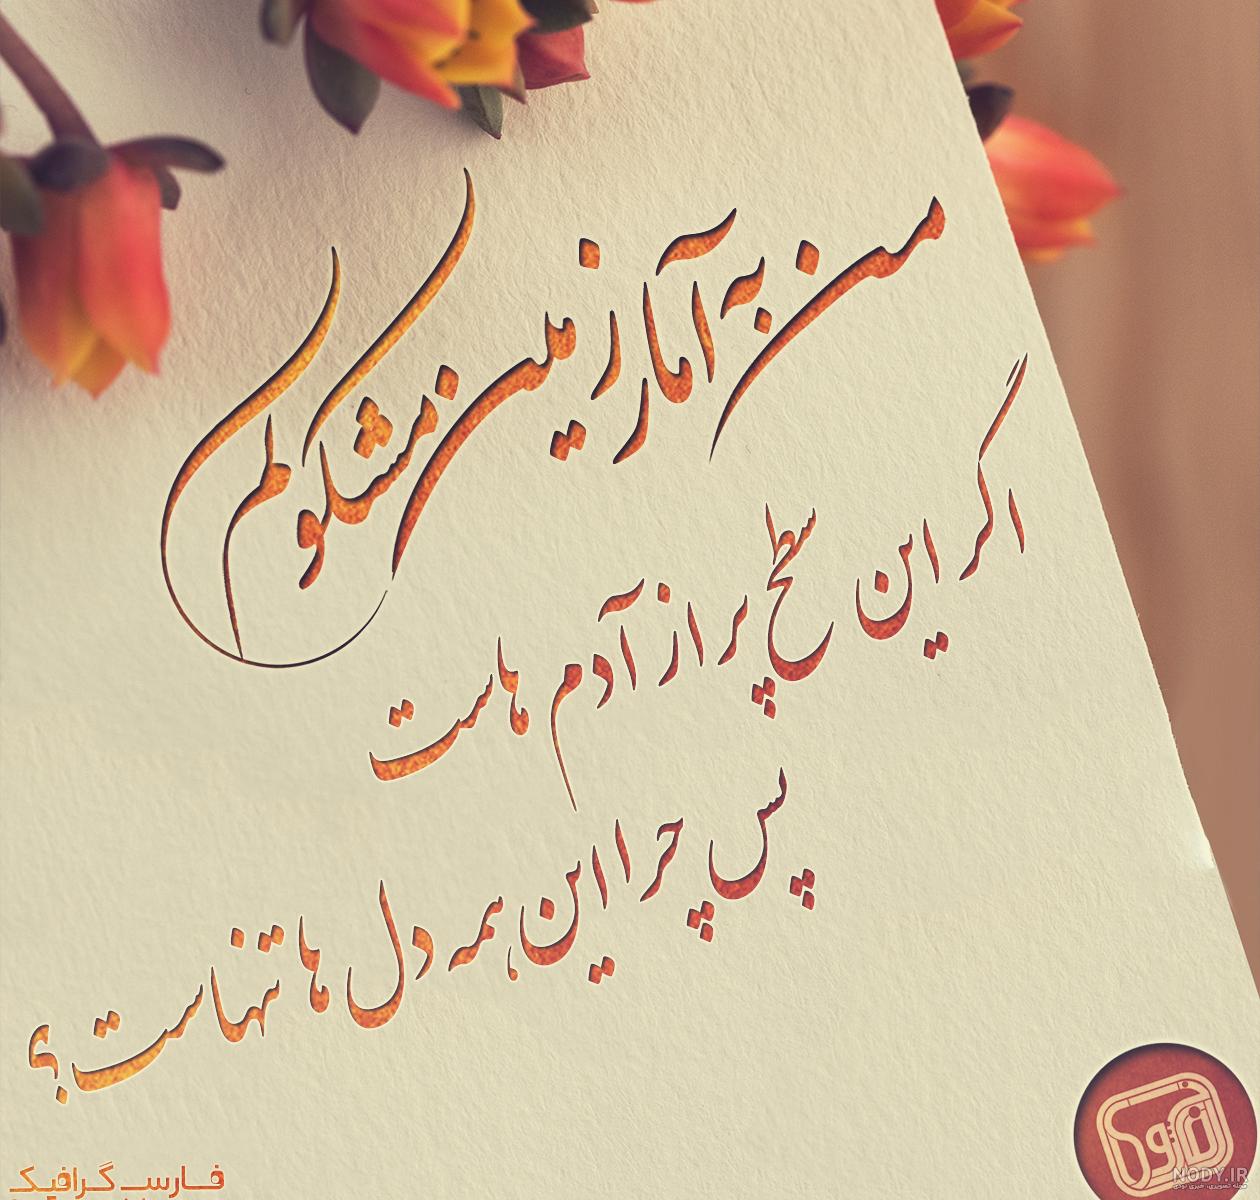 من به آمار زمین مشکوکم
اگر این سطح پر از آدم هاست
پس چرا این همه دل ها تنهاست؟
فارسی گرافیک
NODY.IR